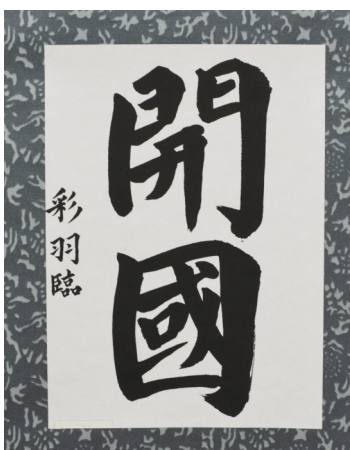 開國
彩羽臨